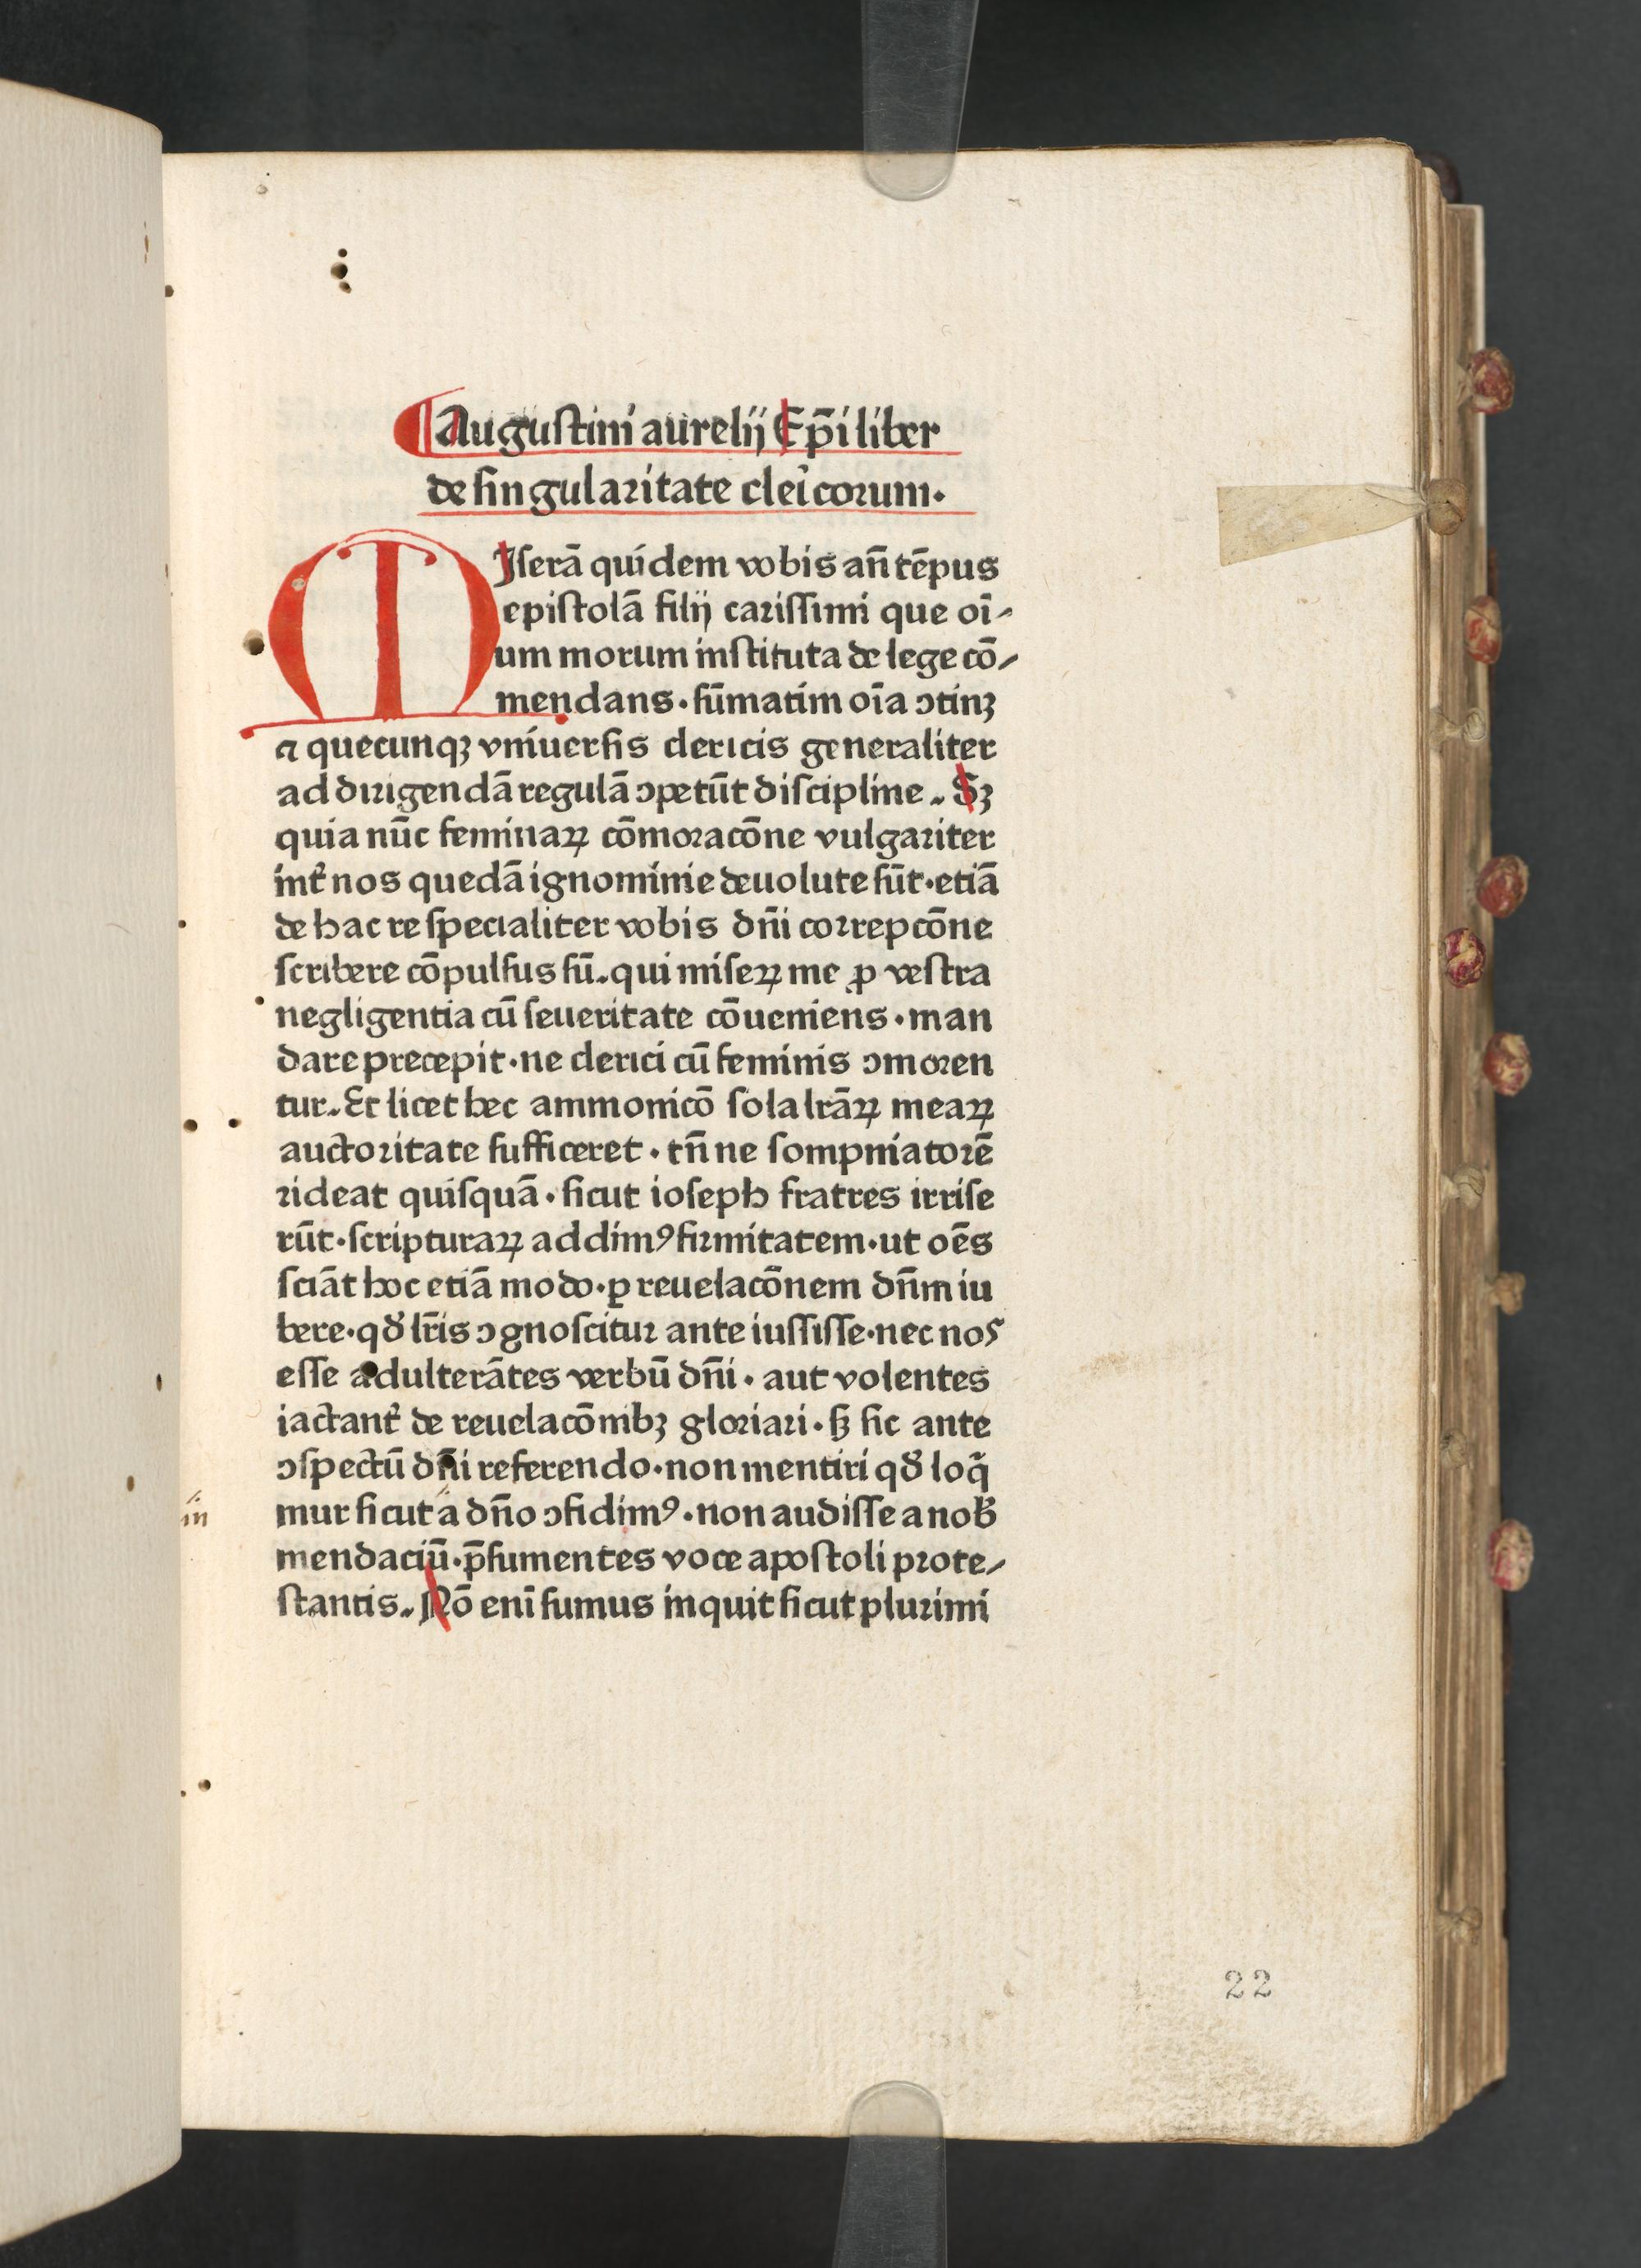 Augustini aurelij Ep̄i liber
de singularitate clei̾corum.
MIserā quidem vobis an̄ tēpus
epistolā filij carissimi que oī-
um morum instituta de lege cō-
mendans. sūmatim oīa ɔtinꝫ
⁊ quecunqꝫ vniuersis clericis generaliter
ad dirigendā regulā ɔpetūt discipline. Sꝫ
quia nūc feminaꝝ cōmoracōne vulgariter
int̾ nos quedā ignominie deuolute sūt. etiā
de hac re specialiter vobis dn̄i correpcōne
scribere cōpulsus sū. qui miseꝝ me ꝓ vestra
negligentia cū seueritate cōueniens. man
dare precepit. ne clerici cū feminis ɔmoren
tur. Et licet hec ammonicō sola lr̄āꝝ meaꝝ
auctoritate sufficeret. tn̄ ne sompniatorē
rideat quisquā. sicut ioseph fratres irrise
rūt. scripturaꝝ addimꝰ firmitatem. ut oēs
sciāt hoc etiā modo. ꝑ reuelacōnem dn̄m iu
bere. qd̾ lr̄is ɔgnoscitur ante iussisse. nec nos
esse adulterātes verbū dn̄i. aut volentes
iactant̾ de reuelacōnibꝫ gloriari. sꝫ sic ante
ɔspectū dn̄i referendo. non mentiri qd̾ loq̄
mur sicut a dn̄o ɔfidimꝰ. non audisse a nob̾
mendaciū. p̄sumentes voce apostoli prote-
stantis. Nō enī sumus inquit sicut plurimi
in
22